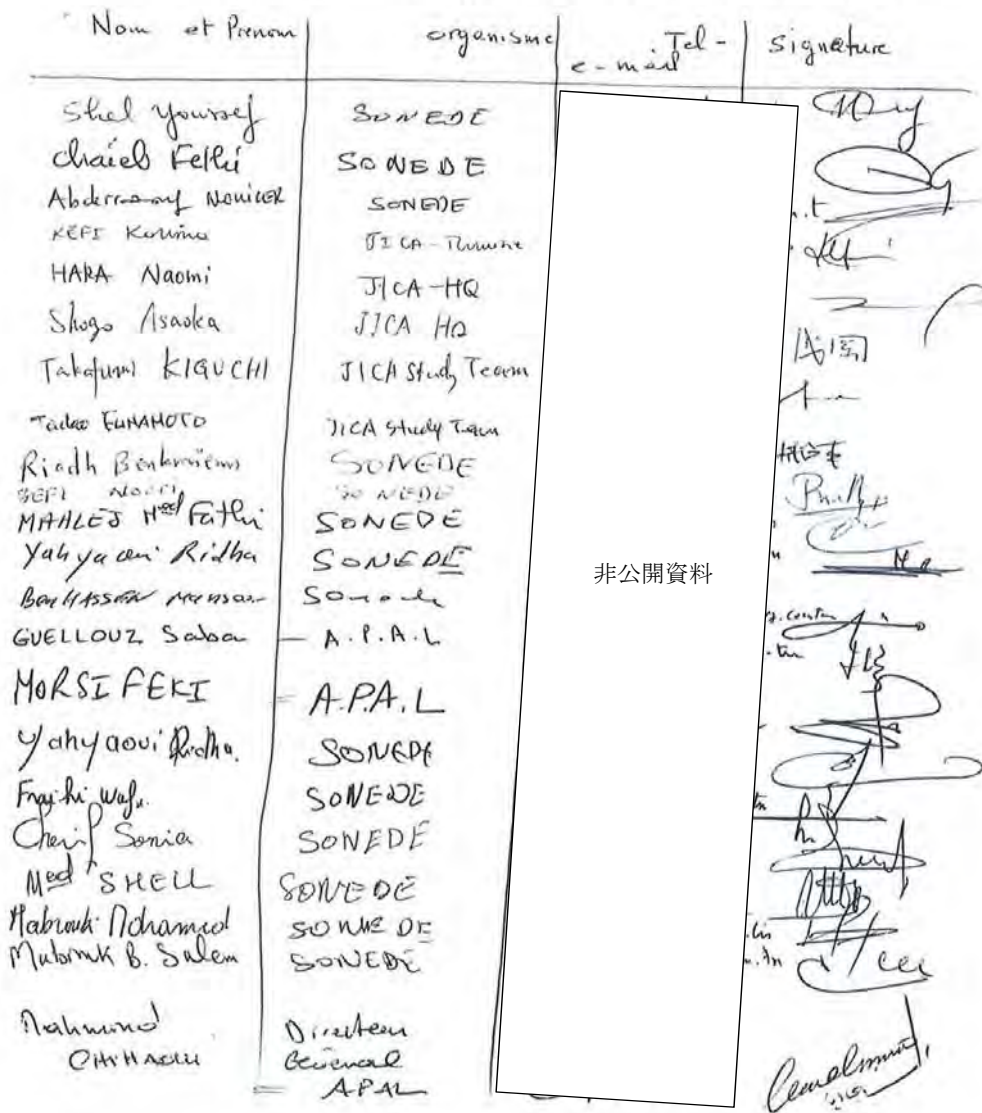 Nom et Prenom organisme Tel- e-mail signature
Shel Youssef SONEDE
Chaieb Fethi SONEDE
Abderraouf NOUICER SONEDE
KEFI Karima JICA-Tunisie
HARA Naomi JICA-HQ
Shogo Asaoka JICA HQ
Takafumi KIGUCHI JICA Study Team
Tadao FUNAMOTO JICA Study Team
Riadh SONEDE
SEFI SONEDE
MAHLEJ Med Fathi SONEDE
Yahyaoui Ridha SONEDE
Ben HASSEN Mansour Sonede
GUELLOUZ Saba — A.P.A.L
MORSI FEKI = A.P.A.L
Yahyaoui Ridha. SONEDE
SONEDE
Cherif Sonia SONEDE
Med SHELL SONEDE
Mabrouk Mohamed SONEDE
Mabrouk B. Salem SONEDE
Mahmoud Directeur
General
= APAL
非公開資料